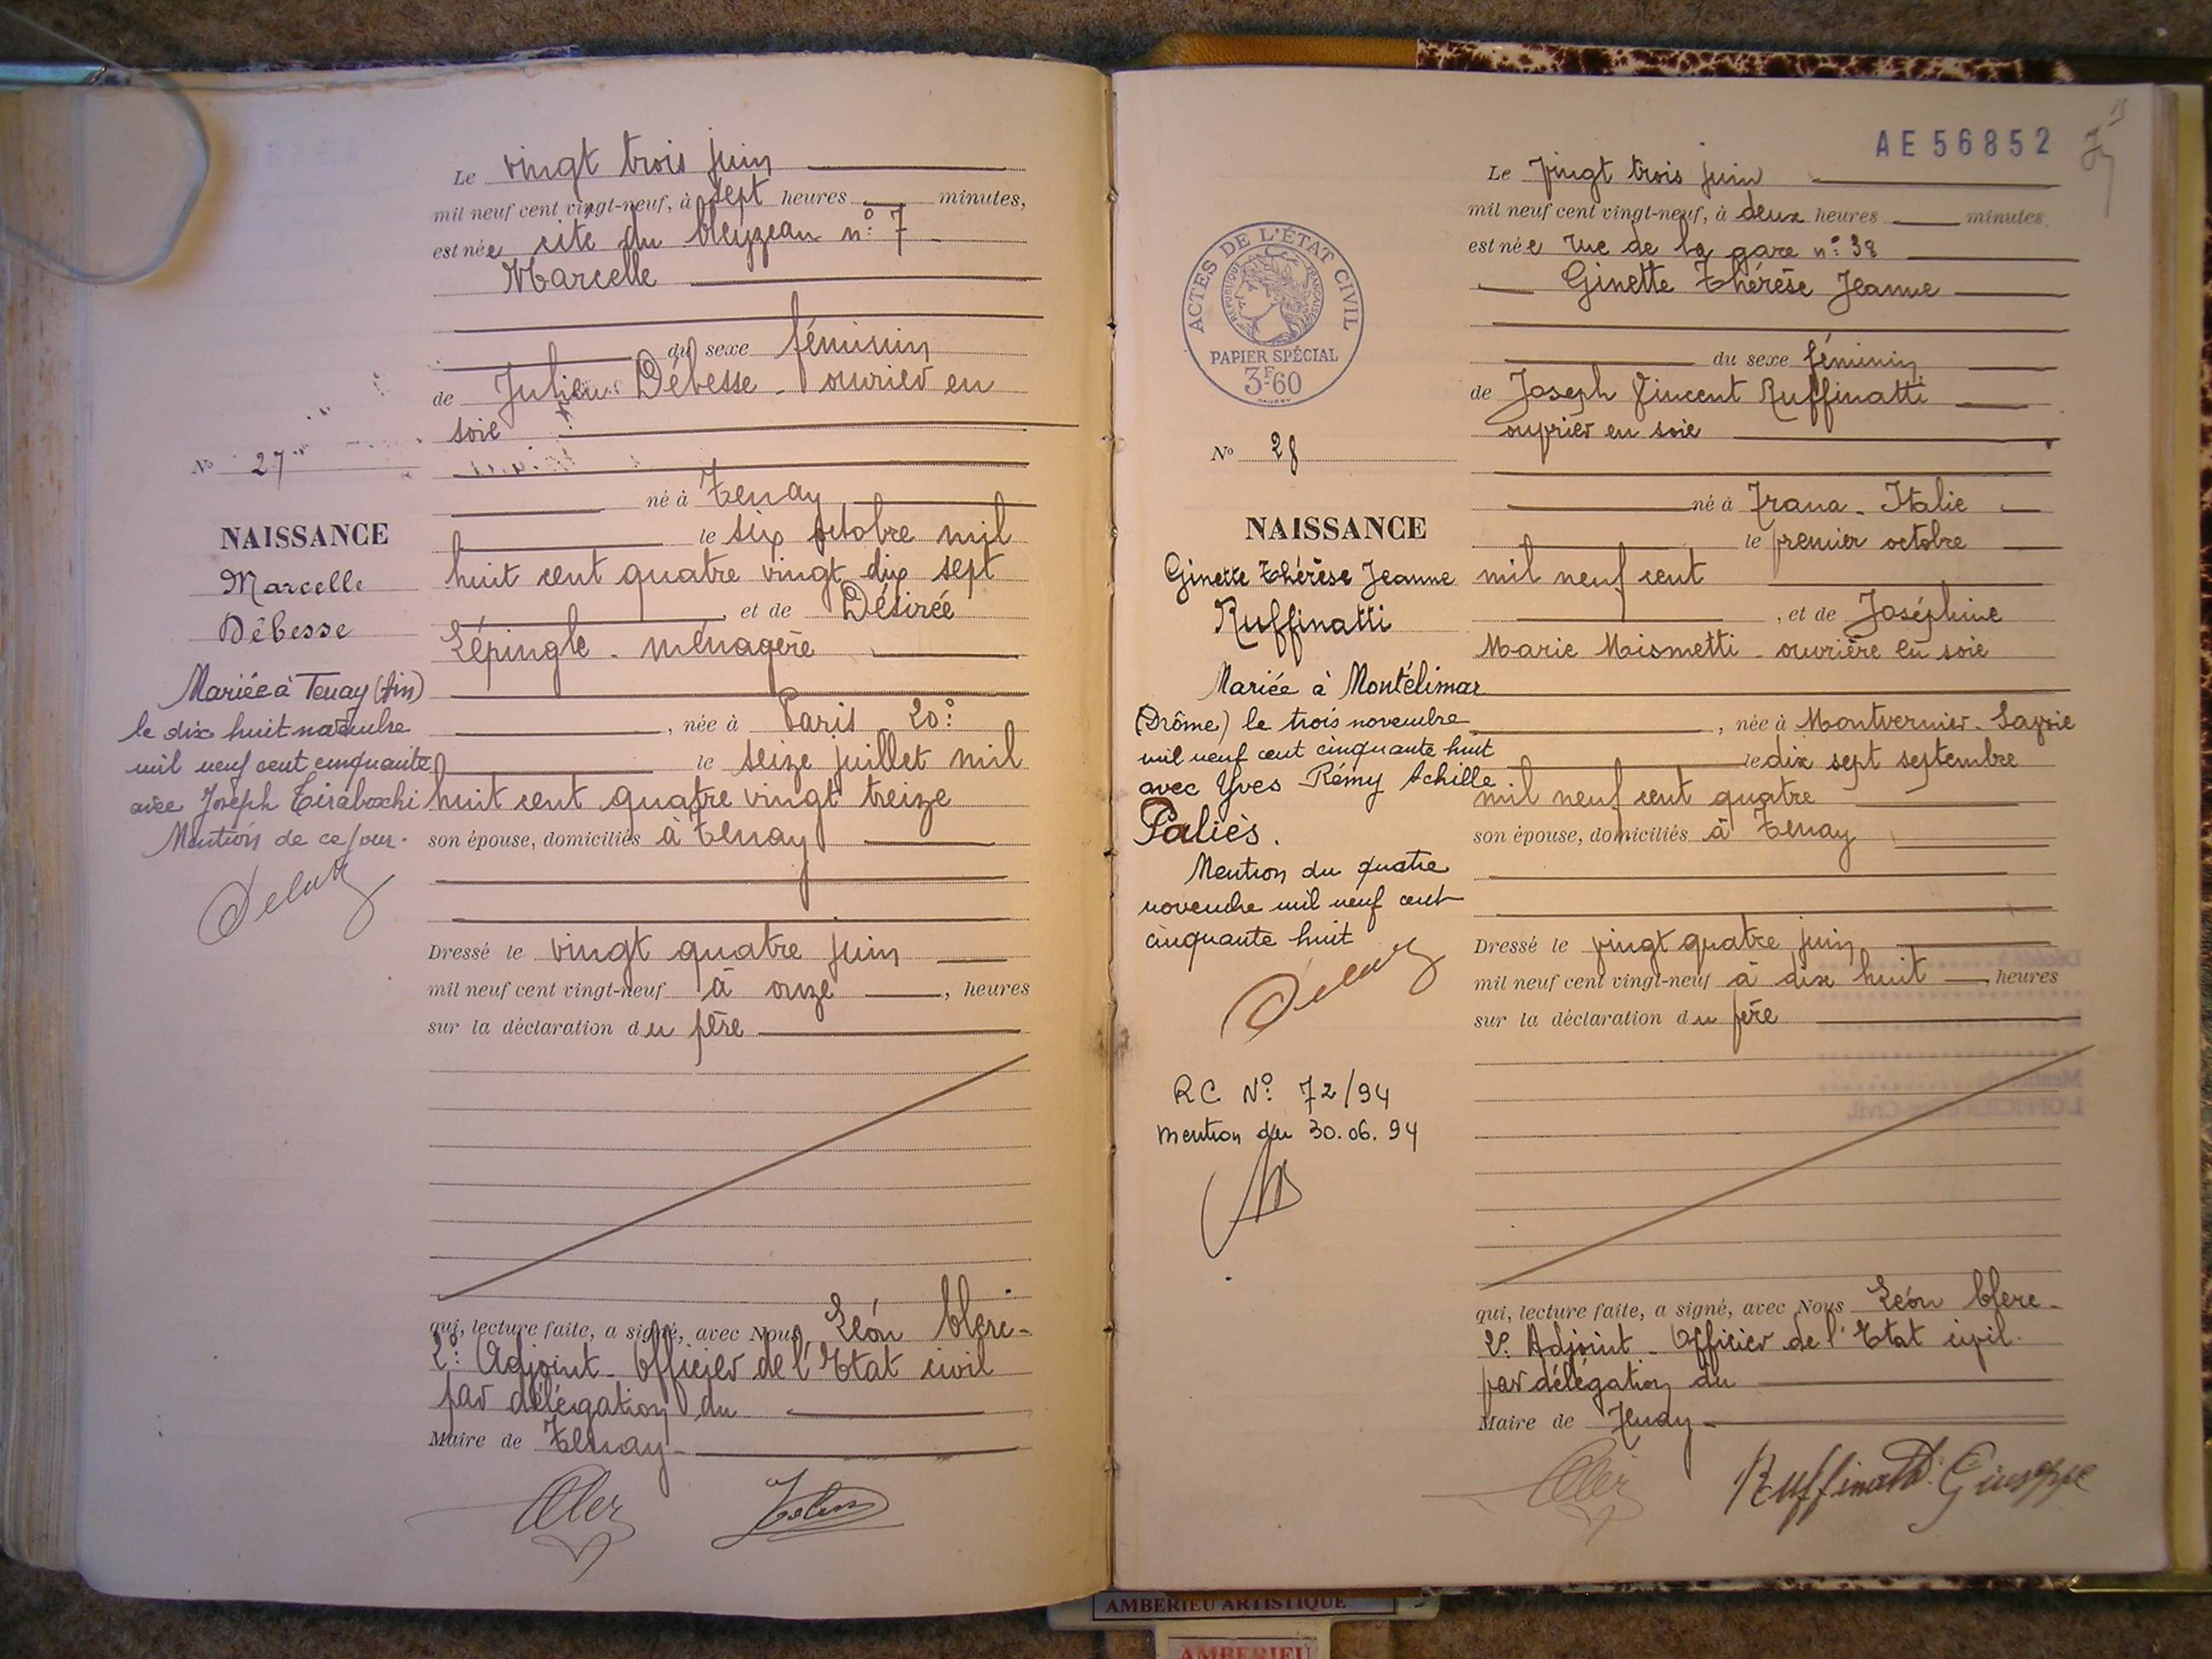 Le vingt trois juin
mil neuf cent vingt-neuf, à sept heures minutes,
est née cité du n° 7
Marcelle
du sexe féminin
de Julien Débesse - ouvrier en
soie
né à Tenay
le six octobre mil
huit cent quatre vingt dix sept
et de Désirée
Lépingle - ménagère
, née à Paris 20°
le seize juillet mil
huit cent quatre vingt treize
son épouse, domiciliés à Tenay
Dressé le vingt quatre juin
mil neuf cent vingt-neuf à onze , heures
sur la déclaration du père
qui, lecture faite, a signé, avec Nous Léon Clerc -
2° Adjoint - Officier de l'Etat civil
par délégation du
Maire de Tenay -
N° 27
NAISSANCE
Marcelle
Débesse
Mariée à Tenay (Ain)
le dix huit novembre
mil neuf cent cinquante
avec Joseph Tiraboschi
Mention de ce jour.
AE 56852
15
ACTES DE L'ÉTAT CIVIL
RÉPUBLIQUE FRANÇAISE
PAPIER SPÉCIAL
3F60
N° 28
NAISSANCE
Ginette Thérèse Jeanne
Ruffinatti
Mariée à Montélimar
(Drôme) le trois novembre
mil neuf cent cinquante huit
avec Yves Rémy Achille
Paliès.
Mention du quatre
novembre mil neuf cent
cinquante huit
RC N° 72/94
mention du 30.06.94
Le vingt trois juin
mil neuf cent vingt-neuf, à deux heures minutes
est née rue de la gare n° 38
Ginette Thérèse Jeanne
du sexe féminin
de Joseph Vincent Ruffinatti
ouvrier en soie
né à Trana - Italie
le premier octobre
mil neuf cent
, et de Joséphine
Marie Mismetti - ouvrière en soie
, née à Montvernier - Savoie
le dix sept septembre
mil neuf cent quatre
son épouse, domiciliés à Tenay
Dressé le vingt quatre juin
mil neuf cent vingt-neuf à dix huit heures
sur la déclaration du père
qui, lecture faite, a signé, avec Nous Léon Clerc -
2° Adjoint - Officier de l'Etat civil.
par délégation du
Maire de Tenay -
Ruffinatti Giuseppe
AMBERIEU ARTISTIQUE
AMBERIEU